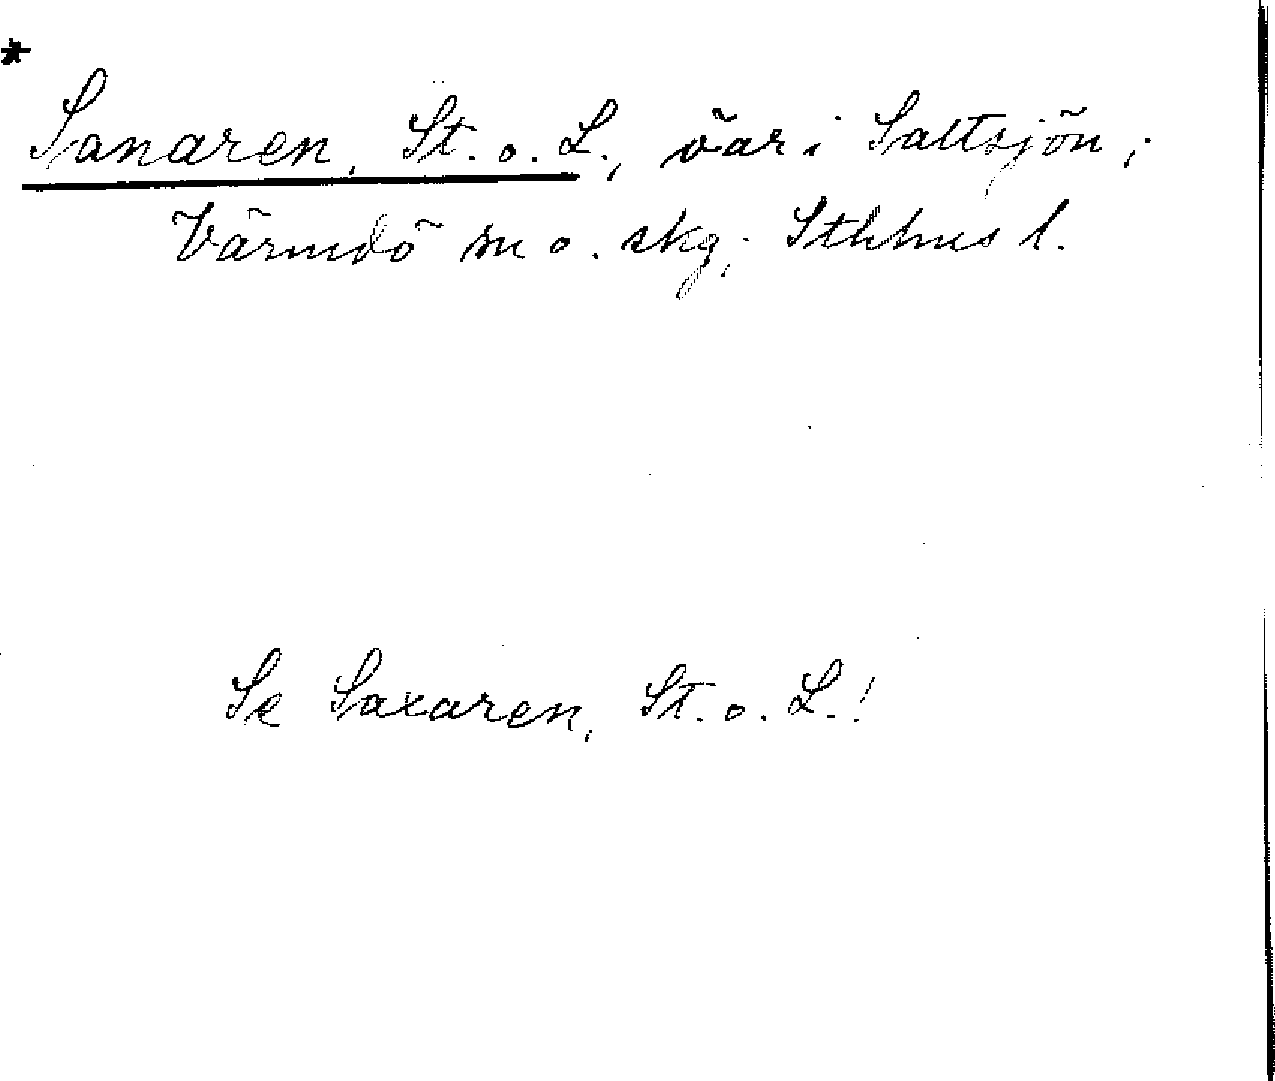 *
Sanaren, St. o. L., öar i Saltsjön;
Värmdö m o. skg; Sthhus l.
Se Saxaren, St. o. L.!